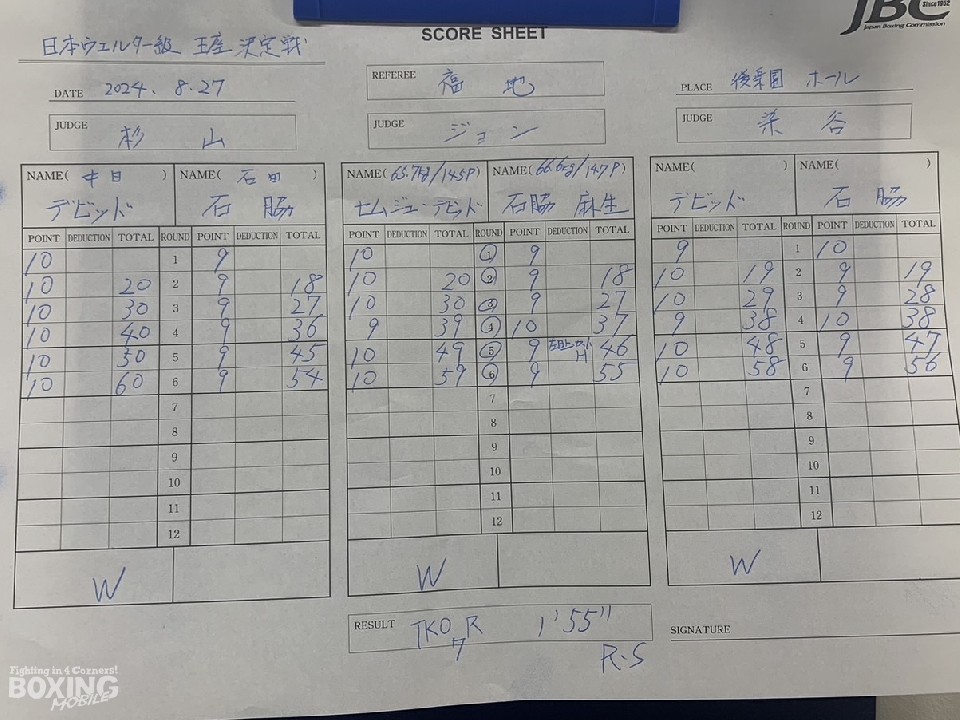 JBC
Since 1952
Japan Boxing Commission
SCORE SHEET
日本ウェルター級 王座 決定戦
DATE 2024. 8.27
REFEREE 福 地
PLACE 後楽園 ホール
JUDGE 杉 山
JUDGE ジョン
JUDGE 染 谷
NAME( ) デビッド
NAME( ) 石 脇
NAME(65.7kg/145P) セムジュ・デビッド
NAME(66.6kg/147P) 石脇 麻生
NAME( ) デビッド
NAME( ) 石 脇
POINT DEDUCTION TOTAL ROUND POINT DEDUCTION TOTAL
POINT DEDUCTION TOTAL ROUND POINT DEDUCTION TOTAL
POINT DEDUCTION TOTAL ROUND POINT DEDUCTION TOTAL
10 1 9
10 1 9
9 1 10
10 20 2 9 18
10 20 2 9 18
10 19 2 9 19
10 30 3 9 27
10 30 3 9 27
10 29 3 9 28
10 40 4 9 36
9 39 4 10 37
9 38 4 10 38
10 50 5 9 45
10 49 5 9 46
10 48 5 9 47
10 60 6 9 54
10 59 6 9 55
10 58 6 9 56
7 7 7
8 8 8
9 9 9
10 10 10
11 11 11
12 12 12
W W W
RESULT TKO 7R 1'55"
R-S
SIGNATURE
Fighting in 4 Corners!
BOXING
MOBILE